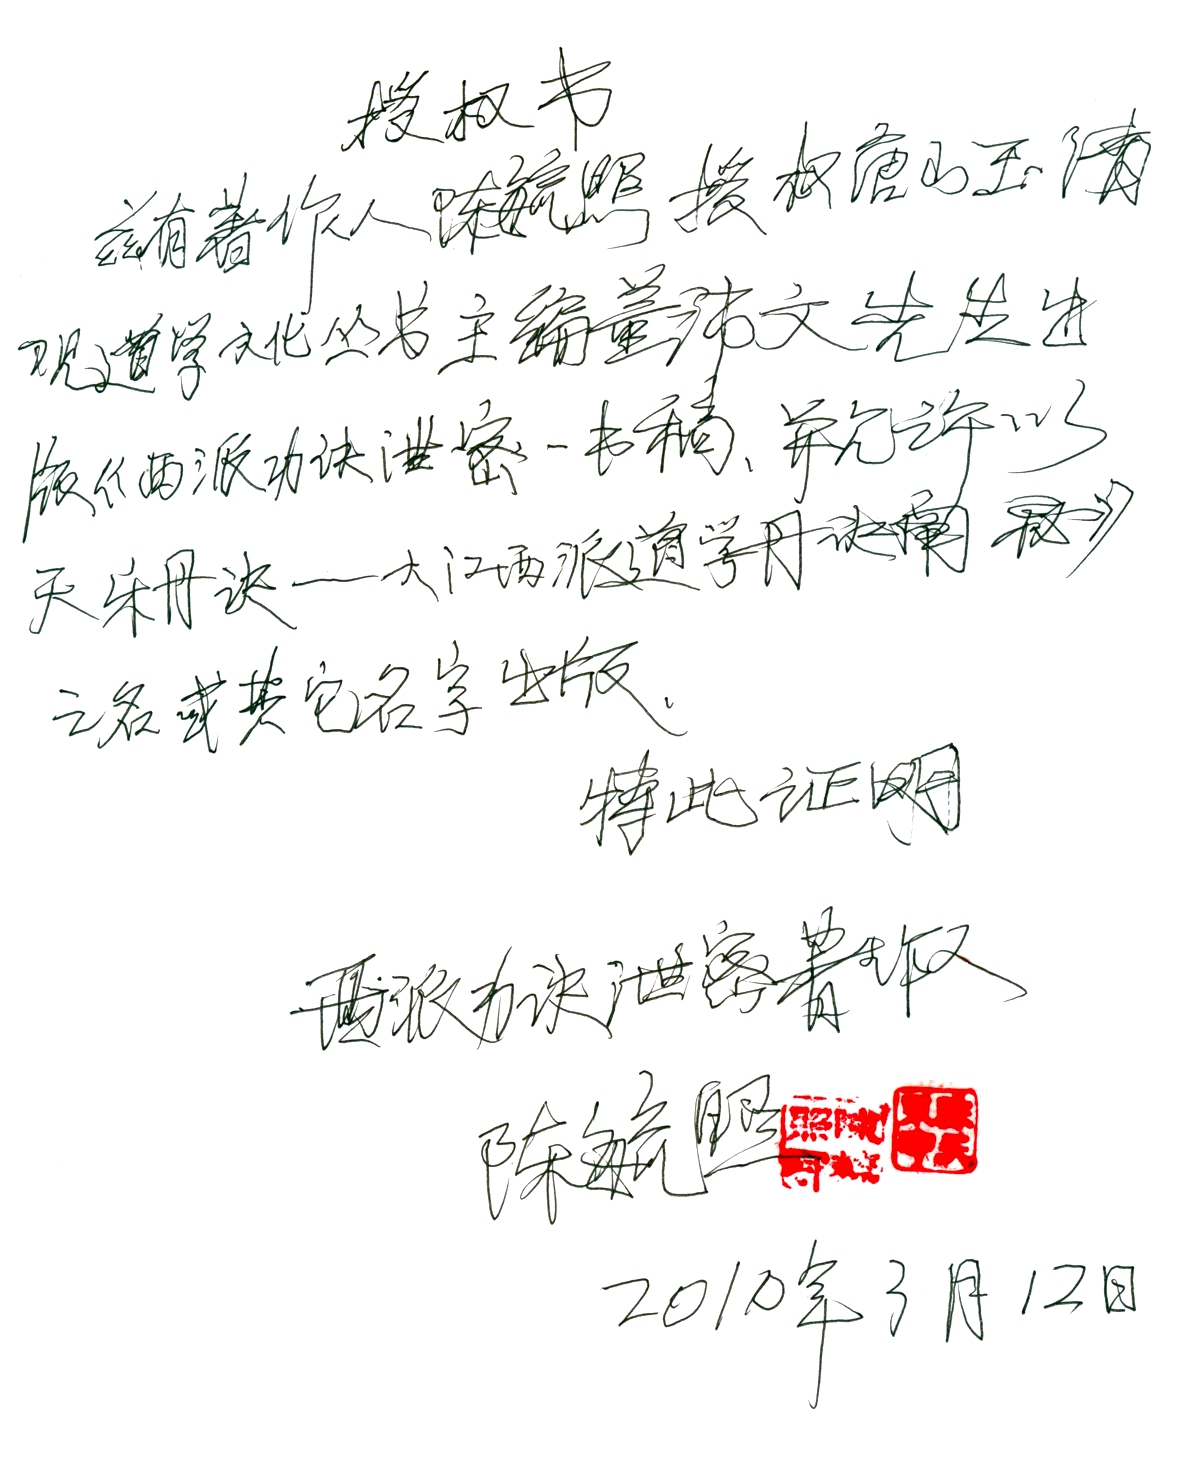 授权书
兹有著作人陈毓照授权唐山玉清
观道学文化丛书主编董沛文先生出
版《西派功诀泄密一书稿、并允许以
天乐丹诀——大江西派道学丹诀阐秘
之名或其它名字出版、
特此证明
西派功诀泄密著作权
陈毓照
2010年3月12日